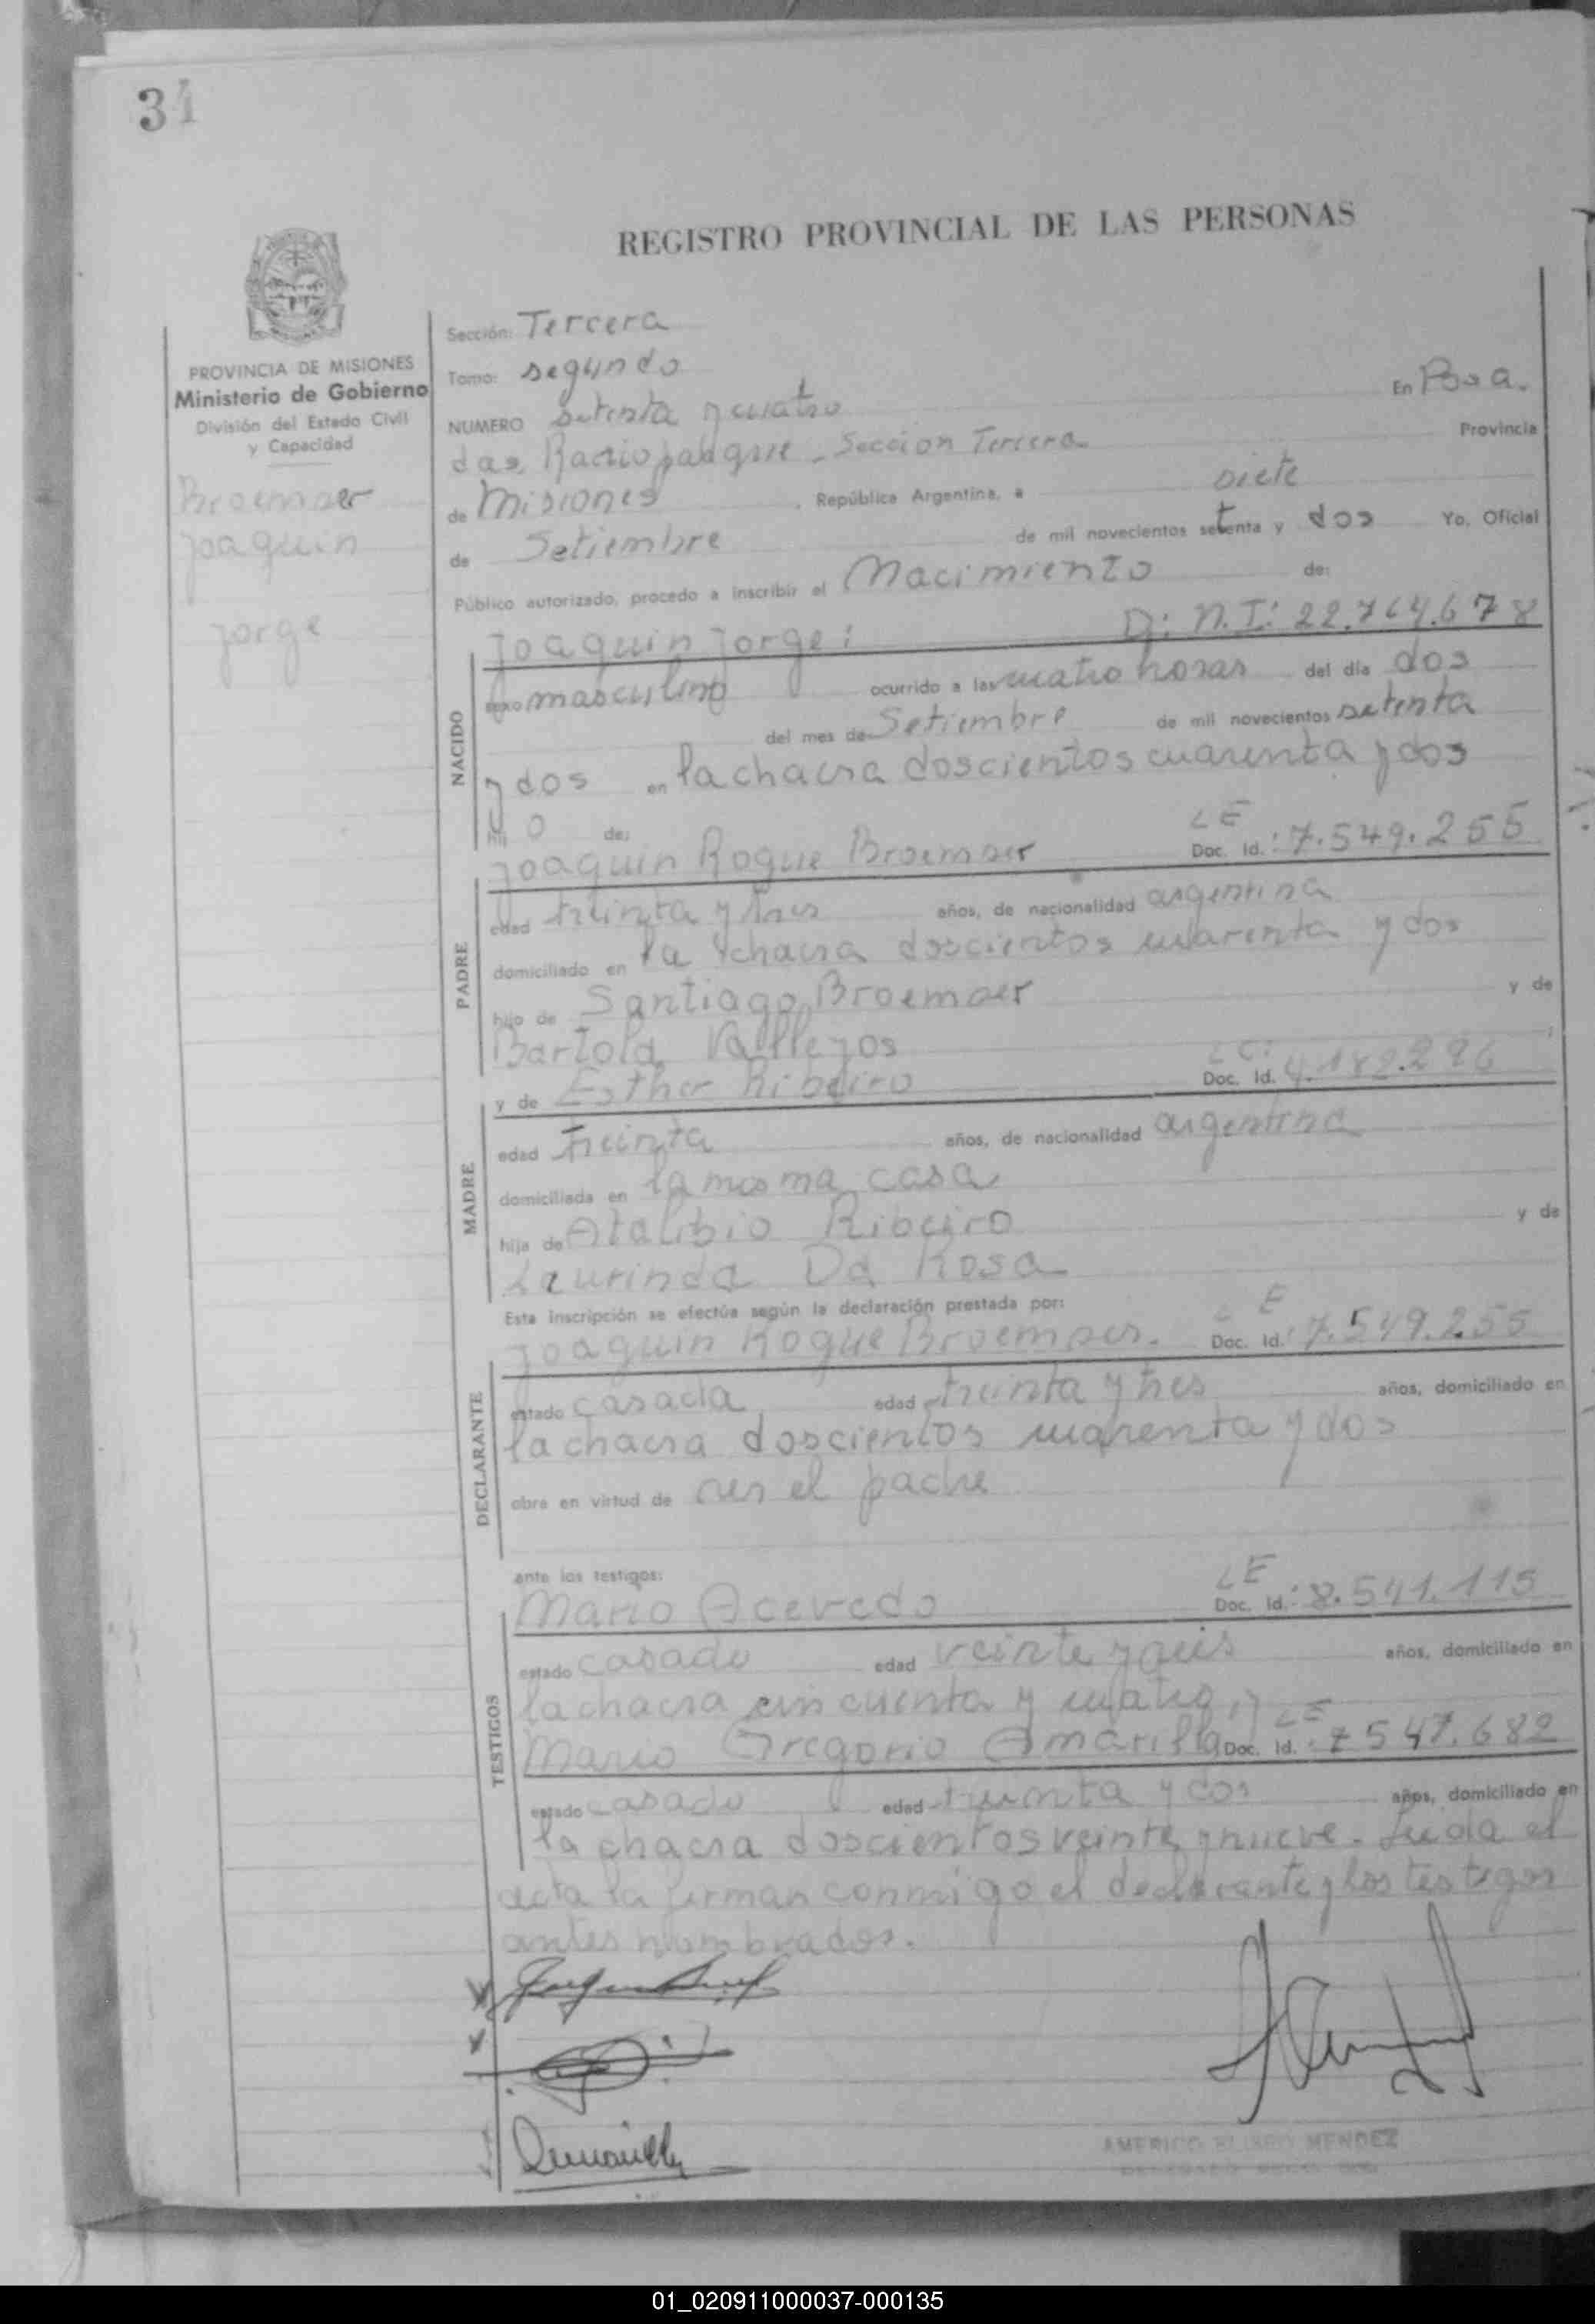 34
REGISTRO PROVINCIAL DE LAS PERSONAS
PROVINCIA DE MISIONES
Ministerio de Gobierno
División del Estado Civil
y Capacidad
Broemser
Joaquin
Jorge
Sección: Tercera
Tomo: segundo
En Posa.
NUMERO setenta y cuatro
das, Sección Tercera Provincia
de Misiones, República Argentina, a siete
de Setiembre de mil novecientos setenta y dos Yo, Oficial
Público autorizado, procedo a inscribir el Nacimiento de:
Joaquin Jorge: D: N.I: 22.764.678
NACIDO
sexo masculino ocurrido a las cuatro horas del día dos
del mes de Setiembre de mil novecientos setenta
y dos en la chacra doscientos cuarenta y dos
hijo de:
Joaquin Roque Broemser LE Doc. Id.: 7.549.255
PADRE
edad treinta y tres años, de nacionalidad argentina
domiciliado en la chacra doscientos cuarenta y dos
hijo de Santiago Broemser y de
Bartola Vallejos
y de Esther Ribeiro LC: Doc. Id. 4.182.226
MADRE
edad treinta años, de nacionalidad argentina
domiciliada en la misma casa
hija de Atalibio Ribeiro y de
Laurinda Da Rosa
Esta inscripción se efectúa según la declaración prestada por:
Joaquin Roque Broemser. LE Doc. Id.: 7.549.255
DECLARANTE
estado casada edad treinta y tres años, domiciliado en
la chacra doscientos cuarenta y dos
obra en virtud de ser el padre
ante los testigos:
Mario Acevedo LE Doc. Id.: 8.541.115
TESTIGOS
estado casado edad veinte y seis años, domiciliado en
la chacra cincuenta y cuatro, y
Mario Gregorio Amarilla LE Doc. Id.: 7547.682
estado casado edad treinta y dos años, domiciliado en
la chacra doscientos veinte y nueve. Leida el
acta la firman conmigo el declarante y los testigos
antes nombrados.
AMERICO ELISEO MENDEZ
01_020911000037-000135